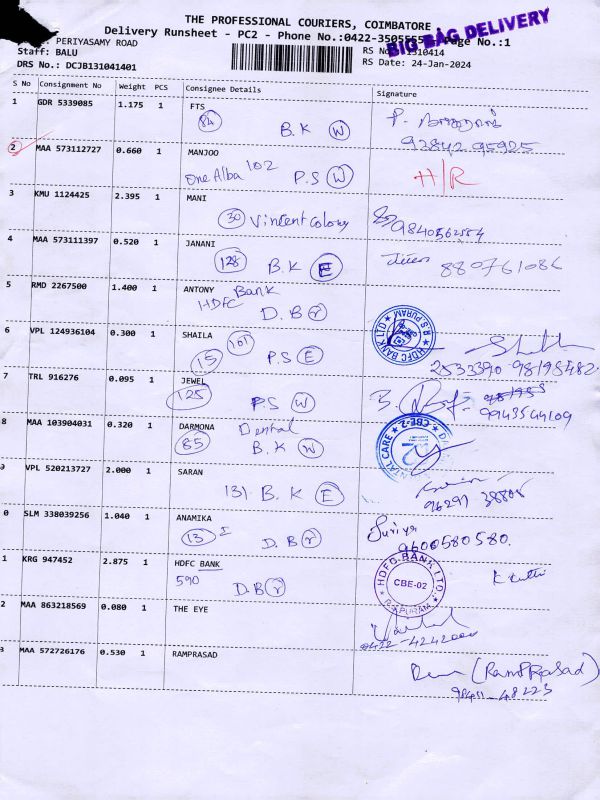 THE PROFESSIONAL COURIERS, COIMBATORE
Delivery Runsheet - PC2 - Phone No.:0422-3505555 Page No.:1
BIG BAG DELIVERY
PERIYASAMY ROAD
Staff: BALU
DRS No.: DCJB131041401
RS No 1310414
RS Date: 24-Jan-2024
S No Consignment No Weight PCS Consignee Details Signature
1 GDR 5339085 1.175 1 FTS
84 B.K W
92842 95925
2 MAA 573112727 0.660 1 MANJOO
One Alba 102 P.S W H/R
3 KMU 1124425 2.395 1 MANI
30 Vincent Colony 9840562554
4 MAA 573111397 0.520 1 JANANI
128 B.K E 880761086
5 RMD 2267500 1.400 1 ANTONY Bank
HDFC D.B r
HDFC BANK LTD R.S PURAM
6 VPL 124936104 0.300 1 SHAILA
15 101 P.S E 2533390 98195482
7 TRL 916276 0.095 1 JEWEL
125 P.S W 9943544109
8 MAA 103904031 0.320 1 DARMONA Dental
85 B.K W
DENTAL CARE CBE-2
9 VPL 520213727 2.000 1 SARAN
131 B.K E 96297 38808
0 SLM 338039256 1.040 1 ANAMIKA Suriya
13 I D.B r 9600580580.
1 KRG 947452 2.875 1 HDFC BANK
590 D.B r
HDFC BANK LTD. CBE-02 R.S PURAM
2 MAA 863218569 0.080 1 THE EYE
0422-4242000
3 MAA 572726176 0.530 1 RAMPRASAD
(RamPrasad)
98411-48223